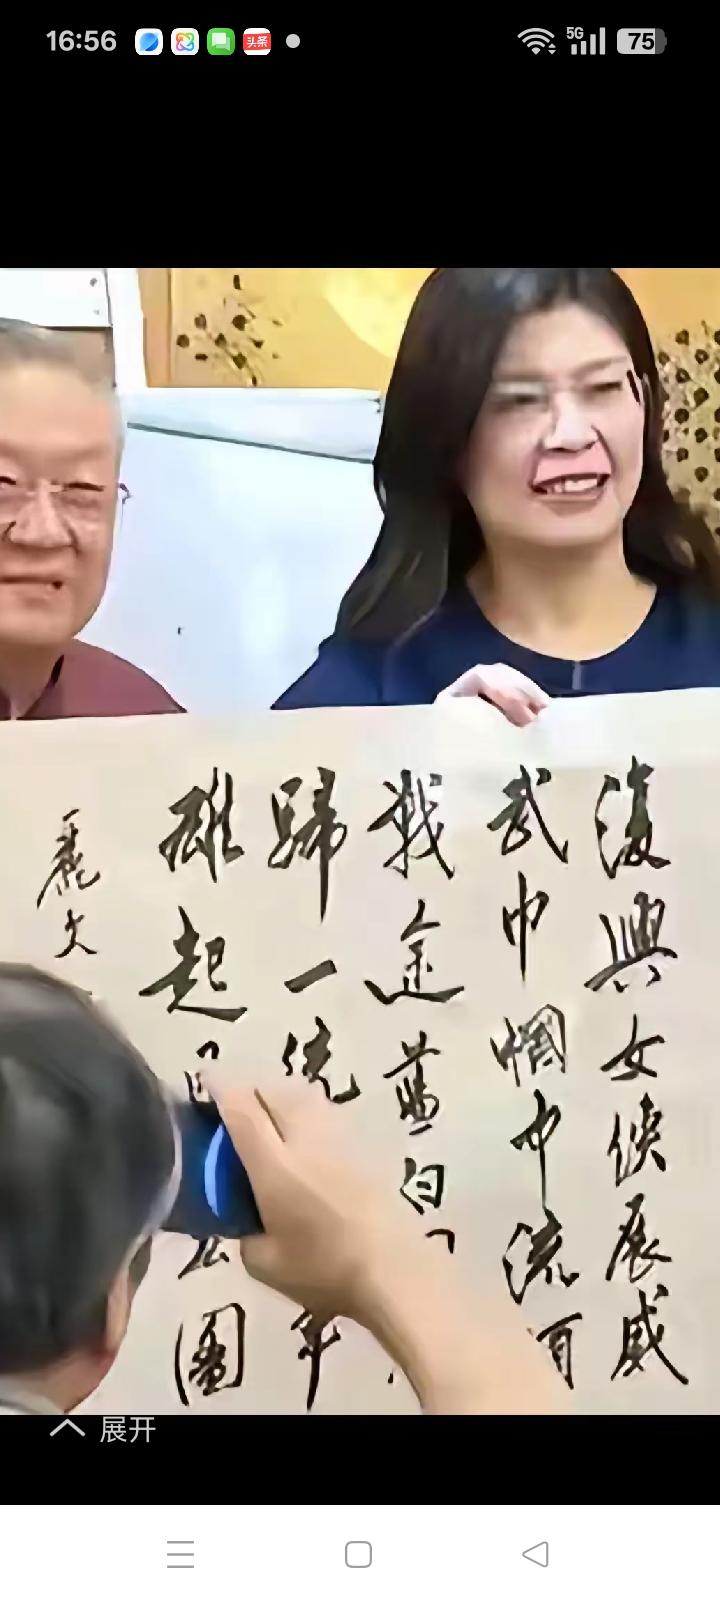 16:56
头条
5G
75
復興女俠展威
武巾幗中流
戰途藍白
歸一統 年
雄起 公團
麗文
展开